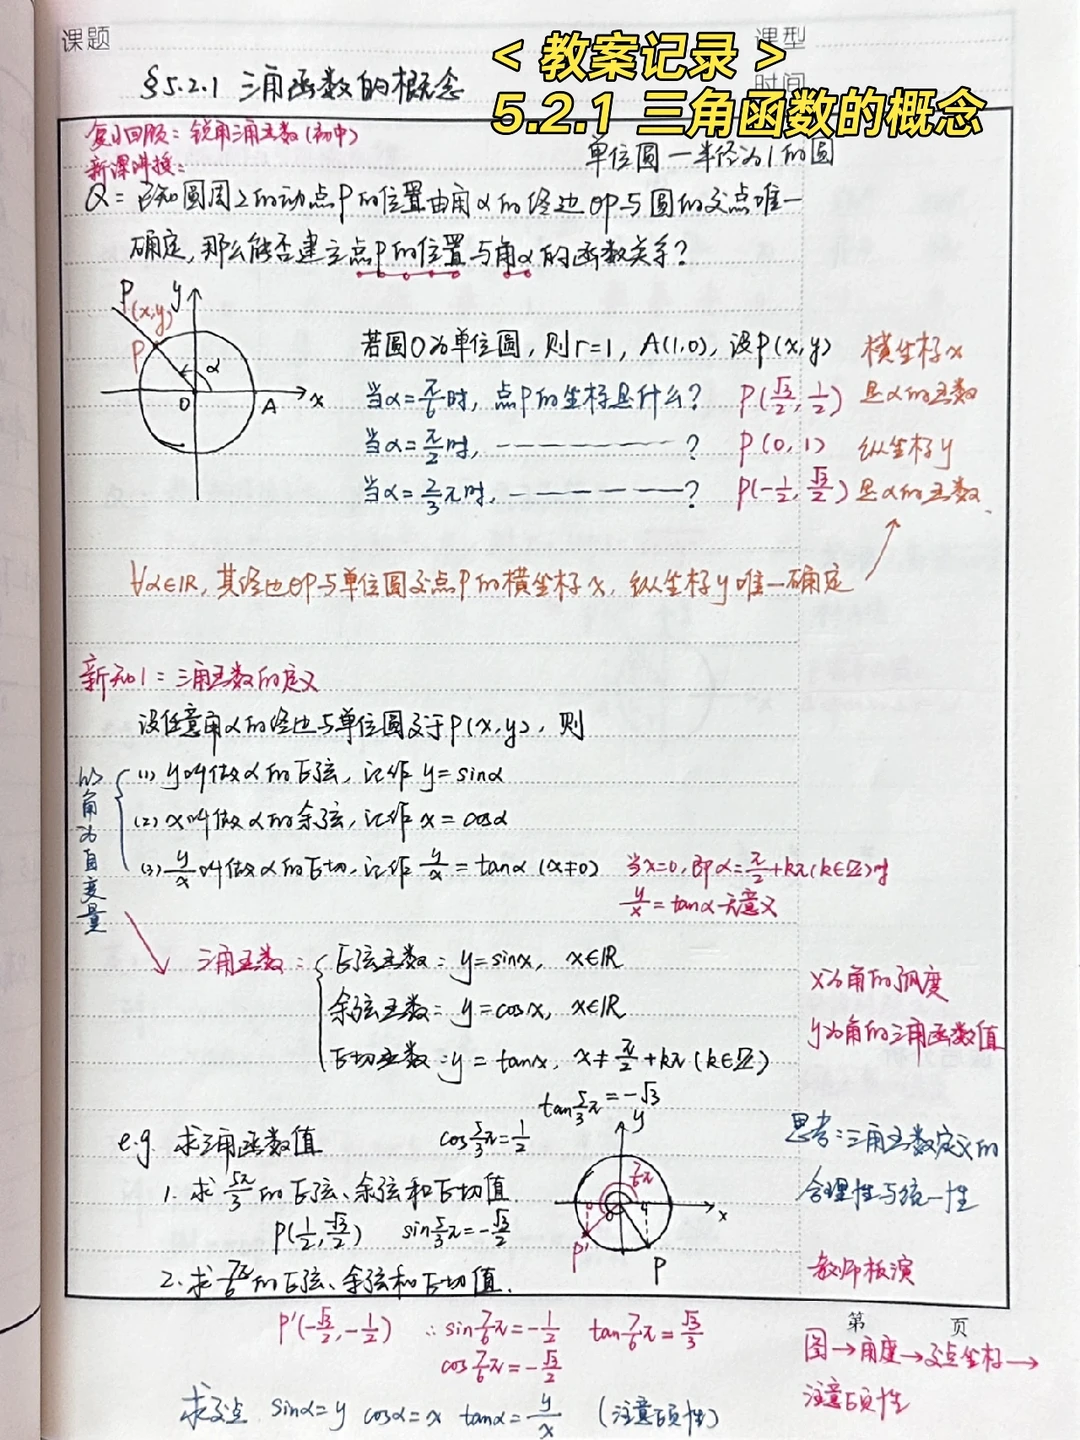 课题
课型
时间
< 教案记录 >
5.2.1 三角函数的概念
§5.2.1 三角函数的概念
复习回顾：锐角三角函数(初中)
单位圆—半径为1的圆
新课讲授：
Q：已知圆周上的动点P的位置由角α的终边OP与圆的交点唯一
确定，那么能否建立点P的位置与角α的函数关系？
P
(x,y)
y
P
α
O
A
x
若圆O为单位圆，则r=1，A(1,0)，设P(x,y)
横坐标x
当α=π/6时，点P的坐标是什么？ P(√3/2, 1/2)
是α的函数
当α=π/2时，—————？ P(0,1)
纵坐标y
当α=2/3π时，—————？ P(-1/2, √3/2)
是α的函数.
∀α∈R, 其终边OP与单位圆交点P的横坐标x, 纵坐标y唯一确定
新知1：三角函数的定义
设任意角α的终边与单位圆交于P(x,y)，则
以角为自变量
(1) y叫做α的正弦，记作 y=sinα
(2) x叫做α的余弦，记作 x=cosα
(3) y/x叫做α的正切，记作 y/x=tanα (x≠0)
当x=0,即α=π/2+kπ(k∈Z)时
y/x=tanα无意义
三角函数：
正弦函数：y=sinx, x∈R
余弦函数：y=cosx, x∈R
正切函数：y=tanx, x≠π/2+kπ(k∈Z)
x为角的弧度
y为角的三角函数值
tan5/3π=-√3
e.g. 求三角函数值
cos5/3π=1/2
y
思考：三角函数定义的
合理性与统一性
1. 求5π/3的正弦、余弦和正切值
7/6π
x
P(1/2, -√3/2) sin5/3π=-√3/2
P'
P
2. 求7π/6的正弦、余弦和正切值.
教师板演
P'(-√3/2, -1/2) ∴sin7/6π=-1/2 tan7/6π=√3/3
cos7/6π=-√3/2
第 页
图→角度→交点坐标→
注意正负性
求交点 sinα=y cosα=x tanα=y/x (注意正负性)